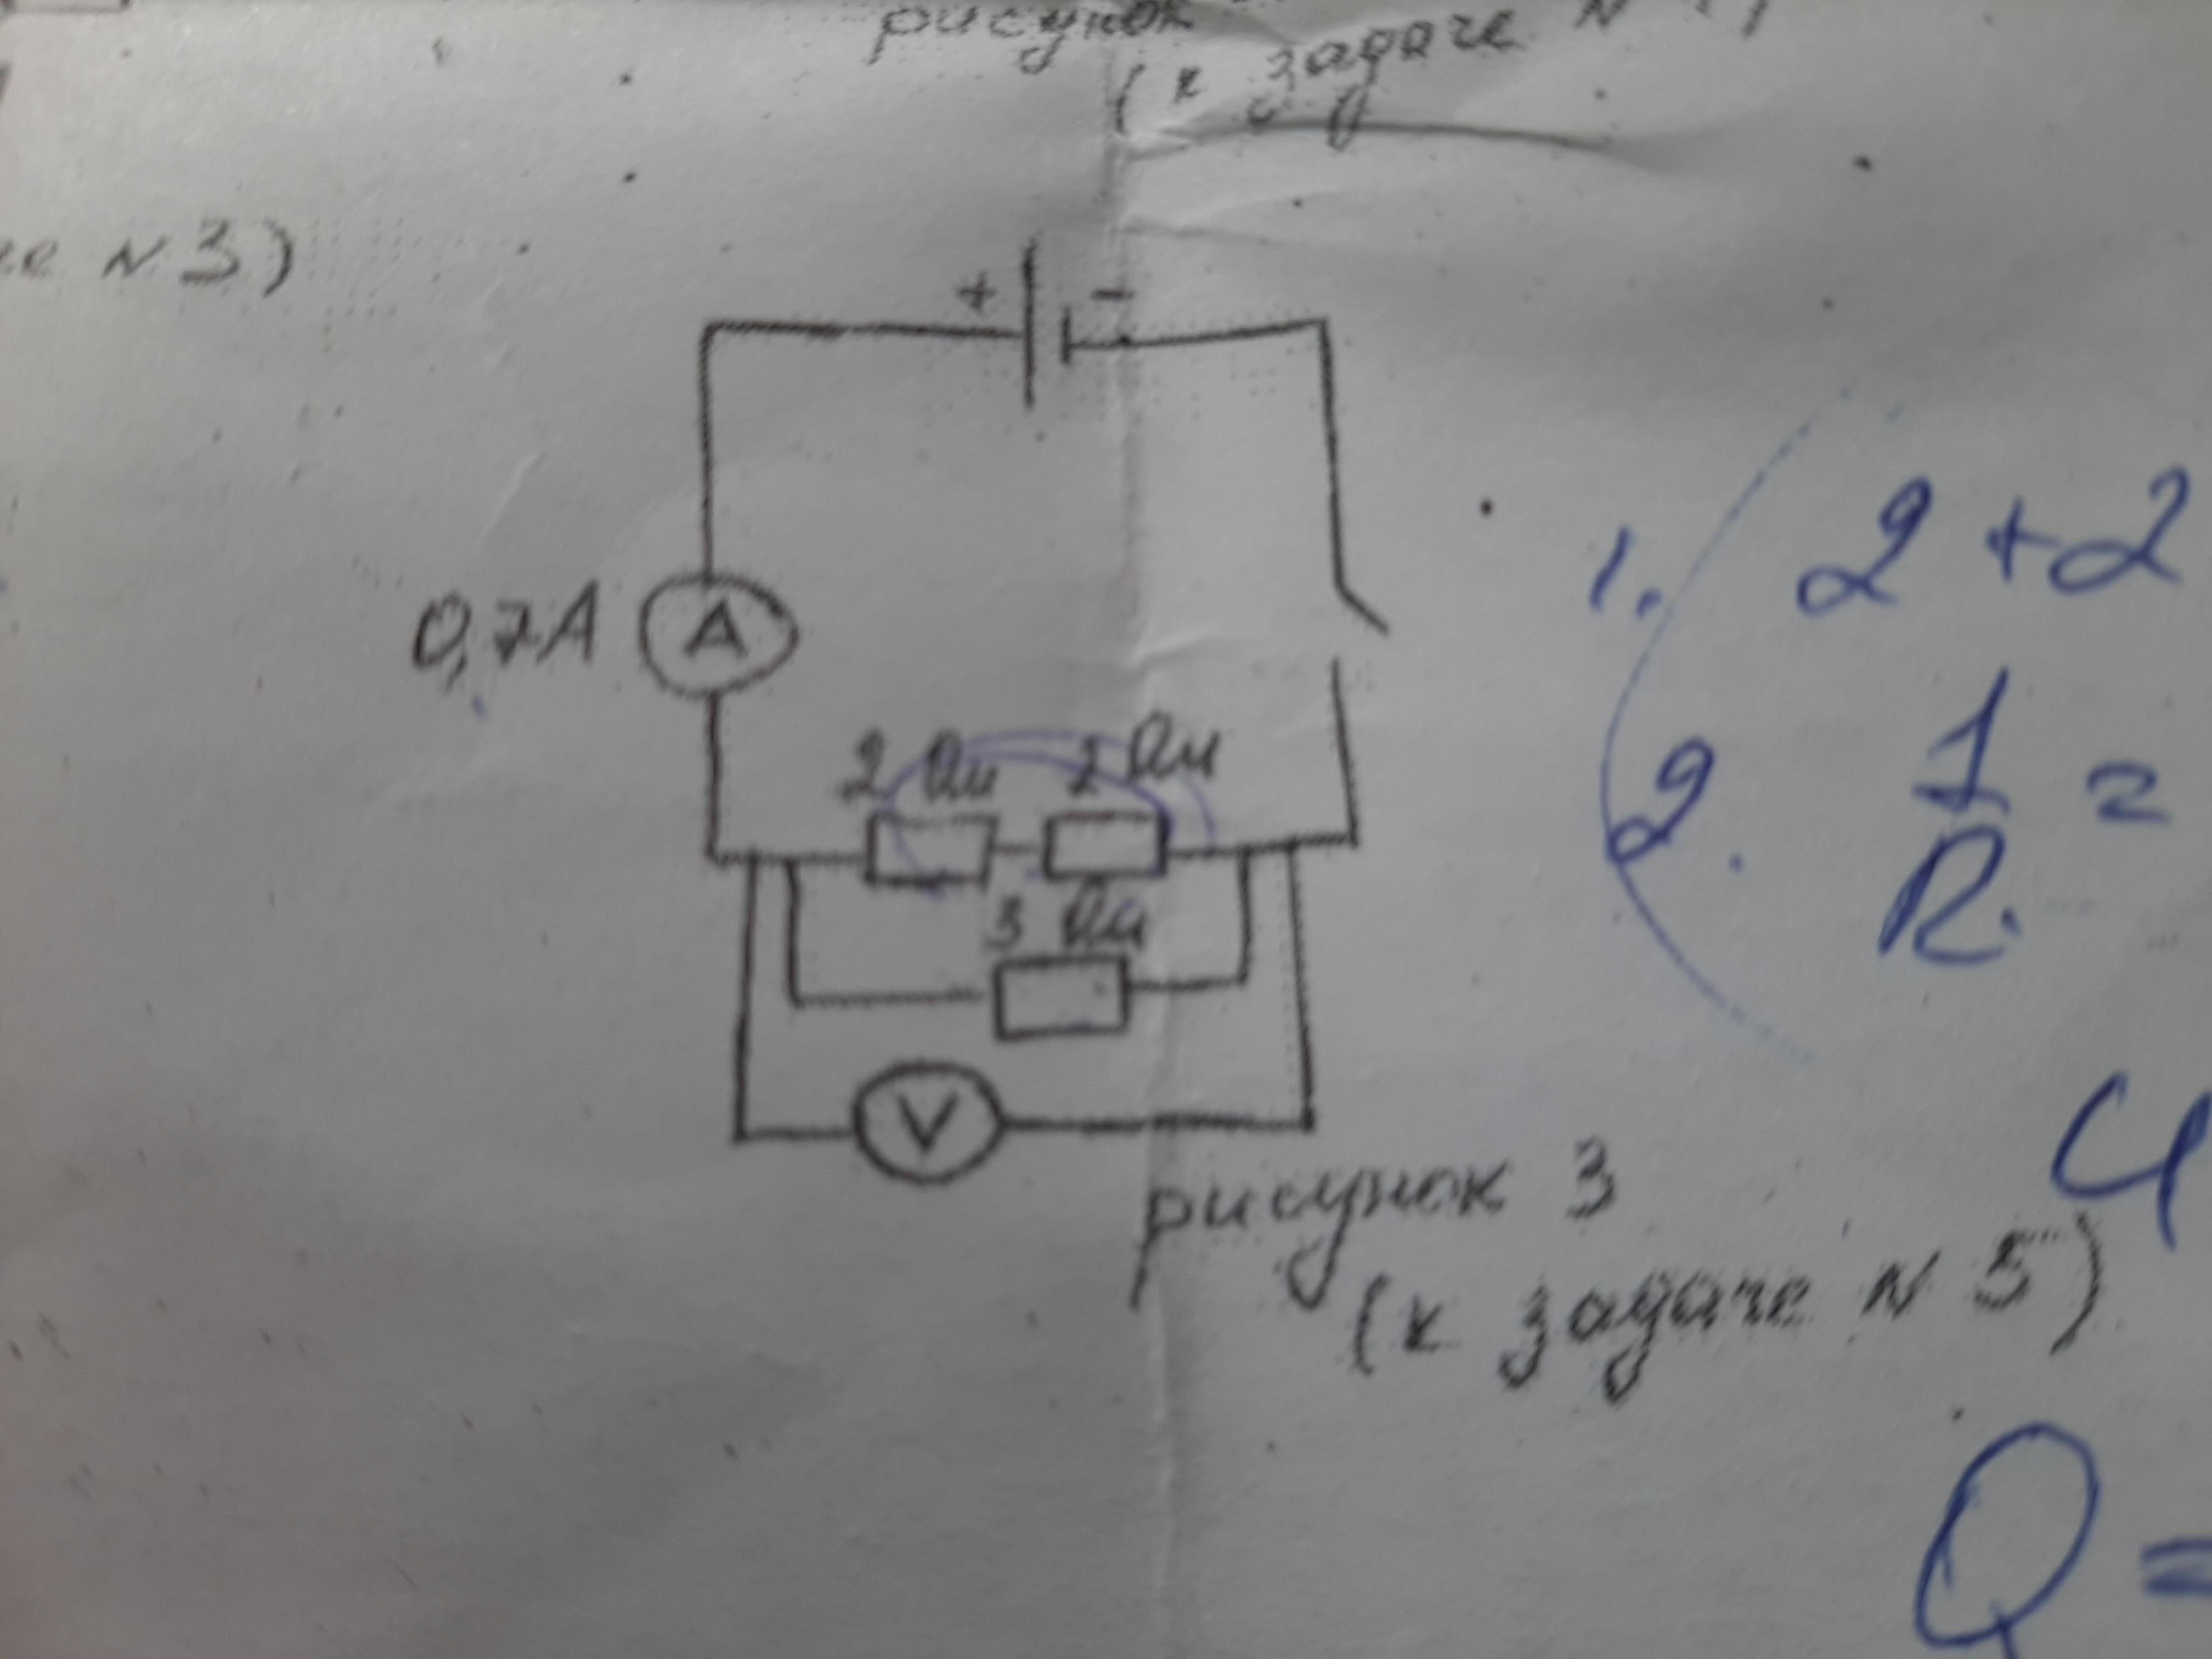 рисунок
(к задаче N
че N3)
+ -
0,7А A
2 Ом 2 Ом
3 Ом
V
рисунок 3
(к задаче N 5)
1. 2+2
2. 1
R =
U
Q =